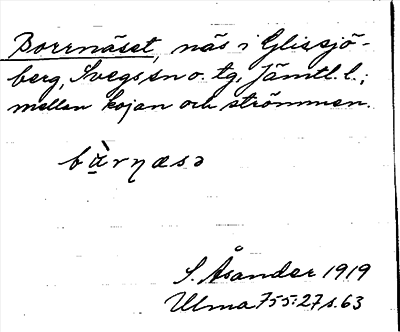 Borrnäset, näs i Glissjö-
berg, Svegs sn o. tg, Jämtl. l.;
mellan kojan och strömmen.
S. Åsander 1919
Ulma 755:27 s. 63